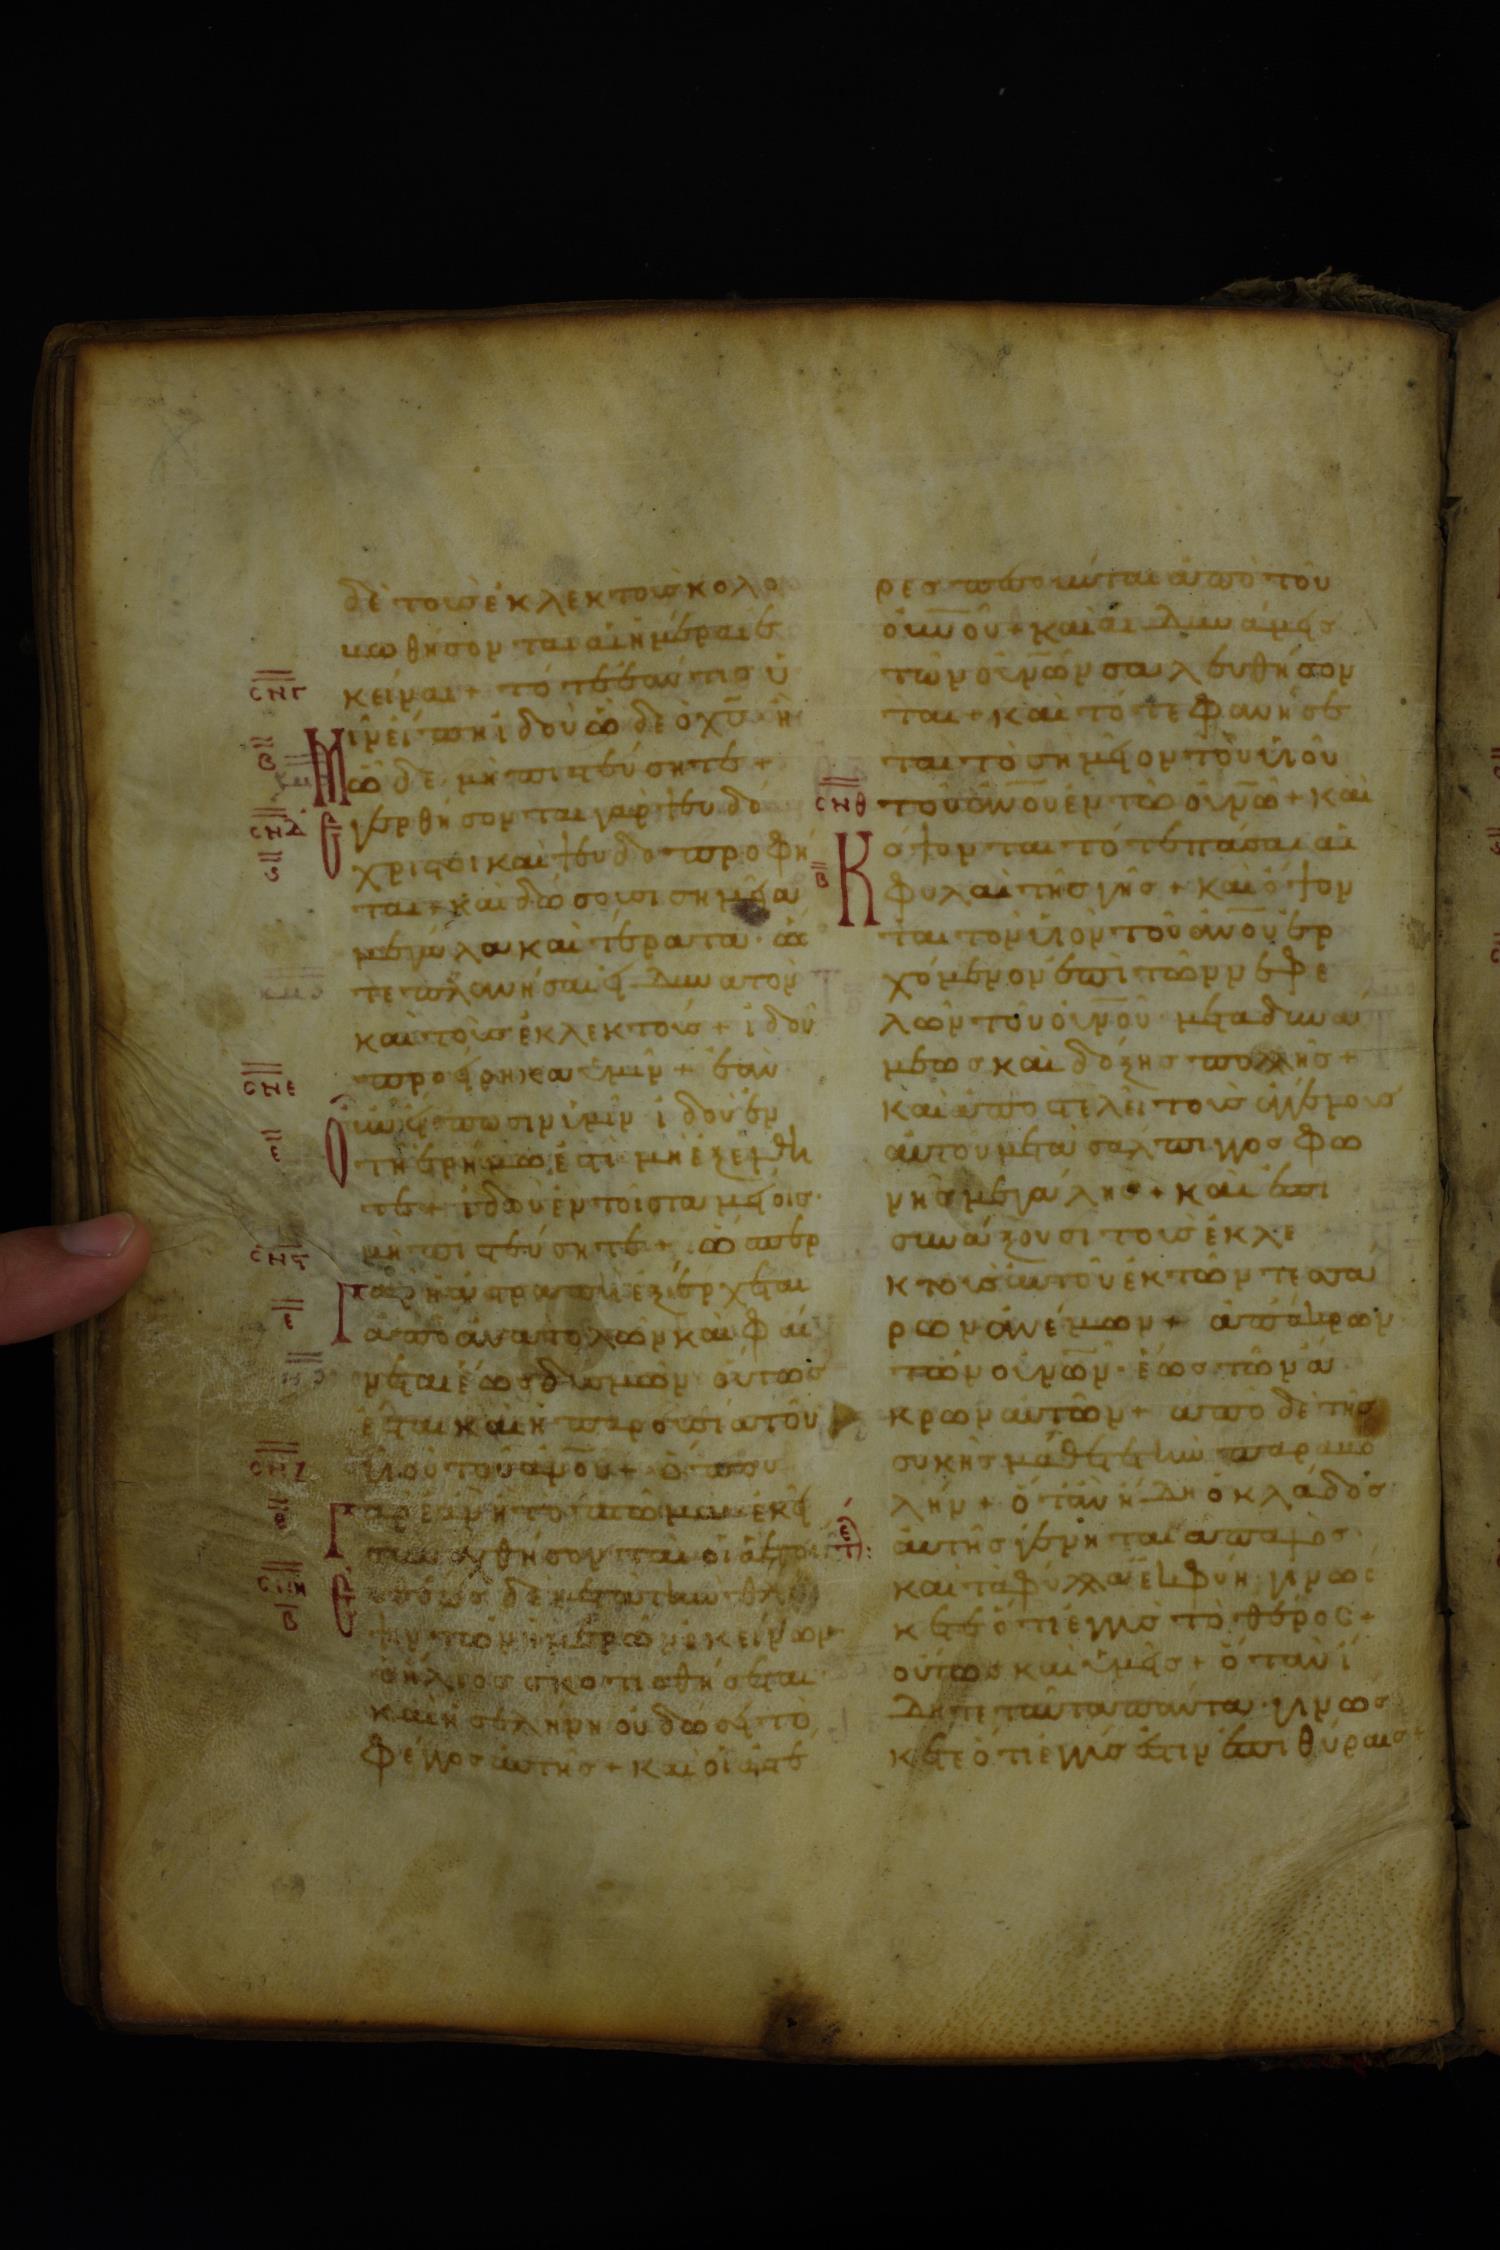 δὲ τοὺσ ἐκλεκτοὺσ κολο
βωθήσονται αἱ ἡμέραι ἐ
κείναι + τότε ἐάν τισ ὑ
μιν εἴπη ἰδοὺ ὧδε ὁ χ̅ς̅ ἢ
ὧδε μὴ πιστεύσητε +
γερθήσονται γὰρ ψευδό
χριστοι καὶ ψευδοπροφῆ
ται + καὶ δώσουσι σημεῖα
μεγάλα καὶ τέρατα· ὥσ
τε πλανῆσαι εἰ δυνατὸν
καὶ τοὺσ ἐκλεκτούσ + ἰδοὺ
προείρηκα ὑμῖν + ἐὰν
οὖν εἴπωσιν ὑμῖν ἰδοὺ ἐν
τῆ ἐρήμω ἐστὶ μὴ ἐξέλθη
τε + ἰδοὺ ἐν τοῖσ ταμείοισ·
μὴ πιστεύσητε + ὥσπερ
γὰρ ἡ ἀστραπὴ ἐξέρχεται
ἀπὸ ἀνατολῶν καὶ φαί
νεται ἕωσ δυσμῶν οὕτωσ
ἔσται καὶ ἡ παρουσία τοῦ
υἱοῦ τοῦ α̅ν̅ο̅υ̅ + ὅπου
γὰρ ἐὰν ἦ τὸ πτῶμα ἐκεῖ
συναχθήσονται οἱ ἀετοί
εὐθέωσ δὲ μετὰ τὴν θλί
ψιν τῶν ἡμερῶν ἐκείνων
ὁ ἥλιοσ σκοτισθήσεται
καὶ ἡ σελήνη οὐ δώσει τὸ
φέγγοσ αὐτῆσ + καὶ οἱ ἀστέ
ρεσ πεσοῦνται ἀπὸ τοῦ
ο̅υ̅ν̅ο̅υ̅ + καὶ αἱ δυνάμεισ
τῶν ο̅υ̅ν̅ῶν σαλευθήσον
ται + καὶ τότε φανήσε
ται τὸ σημεῖον τοῦ υἱοῦ
τοῦ α̅ν̅ο̅υ̅ ἐν τῶ ο̅υ̅ν̅ῶ + καὶ
κόψονται τότε πᾶσαι αἱ
φυλαὶ τῆσ γῆσ + καὶ ὄψον
ται τὸν υἱὸν τοῦ α̅ν̅ο̅υ̅ ἐρ
χόμενον ἐπὶ τῶν νεφε
λῶν τοῦ ο̅υ̅ν̅οῦ μετὰ δυνά
μεωσ καὶ δόξησ πολλῆσ +
καὶ ἀποστελεῖ τοὺσ ἀγγέλουσ
αὐτοῦ μετὰ σάλπιγγοσ φω
νῆσ μεγάλησ + καὶ ἐπι
συνάξουσι τοὺσ ἐκλε
κτοὺσ αὐτοῦ ἐκ τῶν τεσσά
ρων ἀνέμων + ἀπ' ἄκρων
τῶν ο̅υ̅ν̅ῶν· ἕωσ τῶν ἄ
κρων αὐτῶν + ἀπὸ δὲ τῆσ
συκῆσ μάθετε τὴν παραβο
λήν + ὅταν ἤδη ὁ κλάδοσ
αὐτῆσ γένηται ἁπαλὸσ
καὶ τὰ φύλλα ἐκφύη· γινώσ
κετε ὅτι ἐγγὺσ τὸ θέροσ +
οὕτωσ καὶ ὑμεῖσ + ὅταν ἴ
δητε ταῦτα πάντα· γινώσ
κετε ὅτι ἐγγύσ ἐστιν ἐπὶ θύραισ +